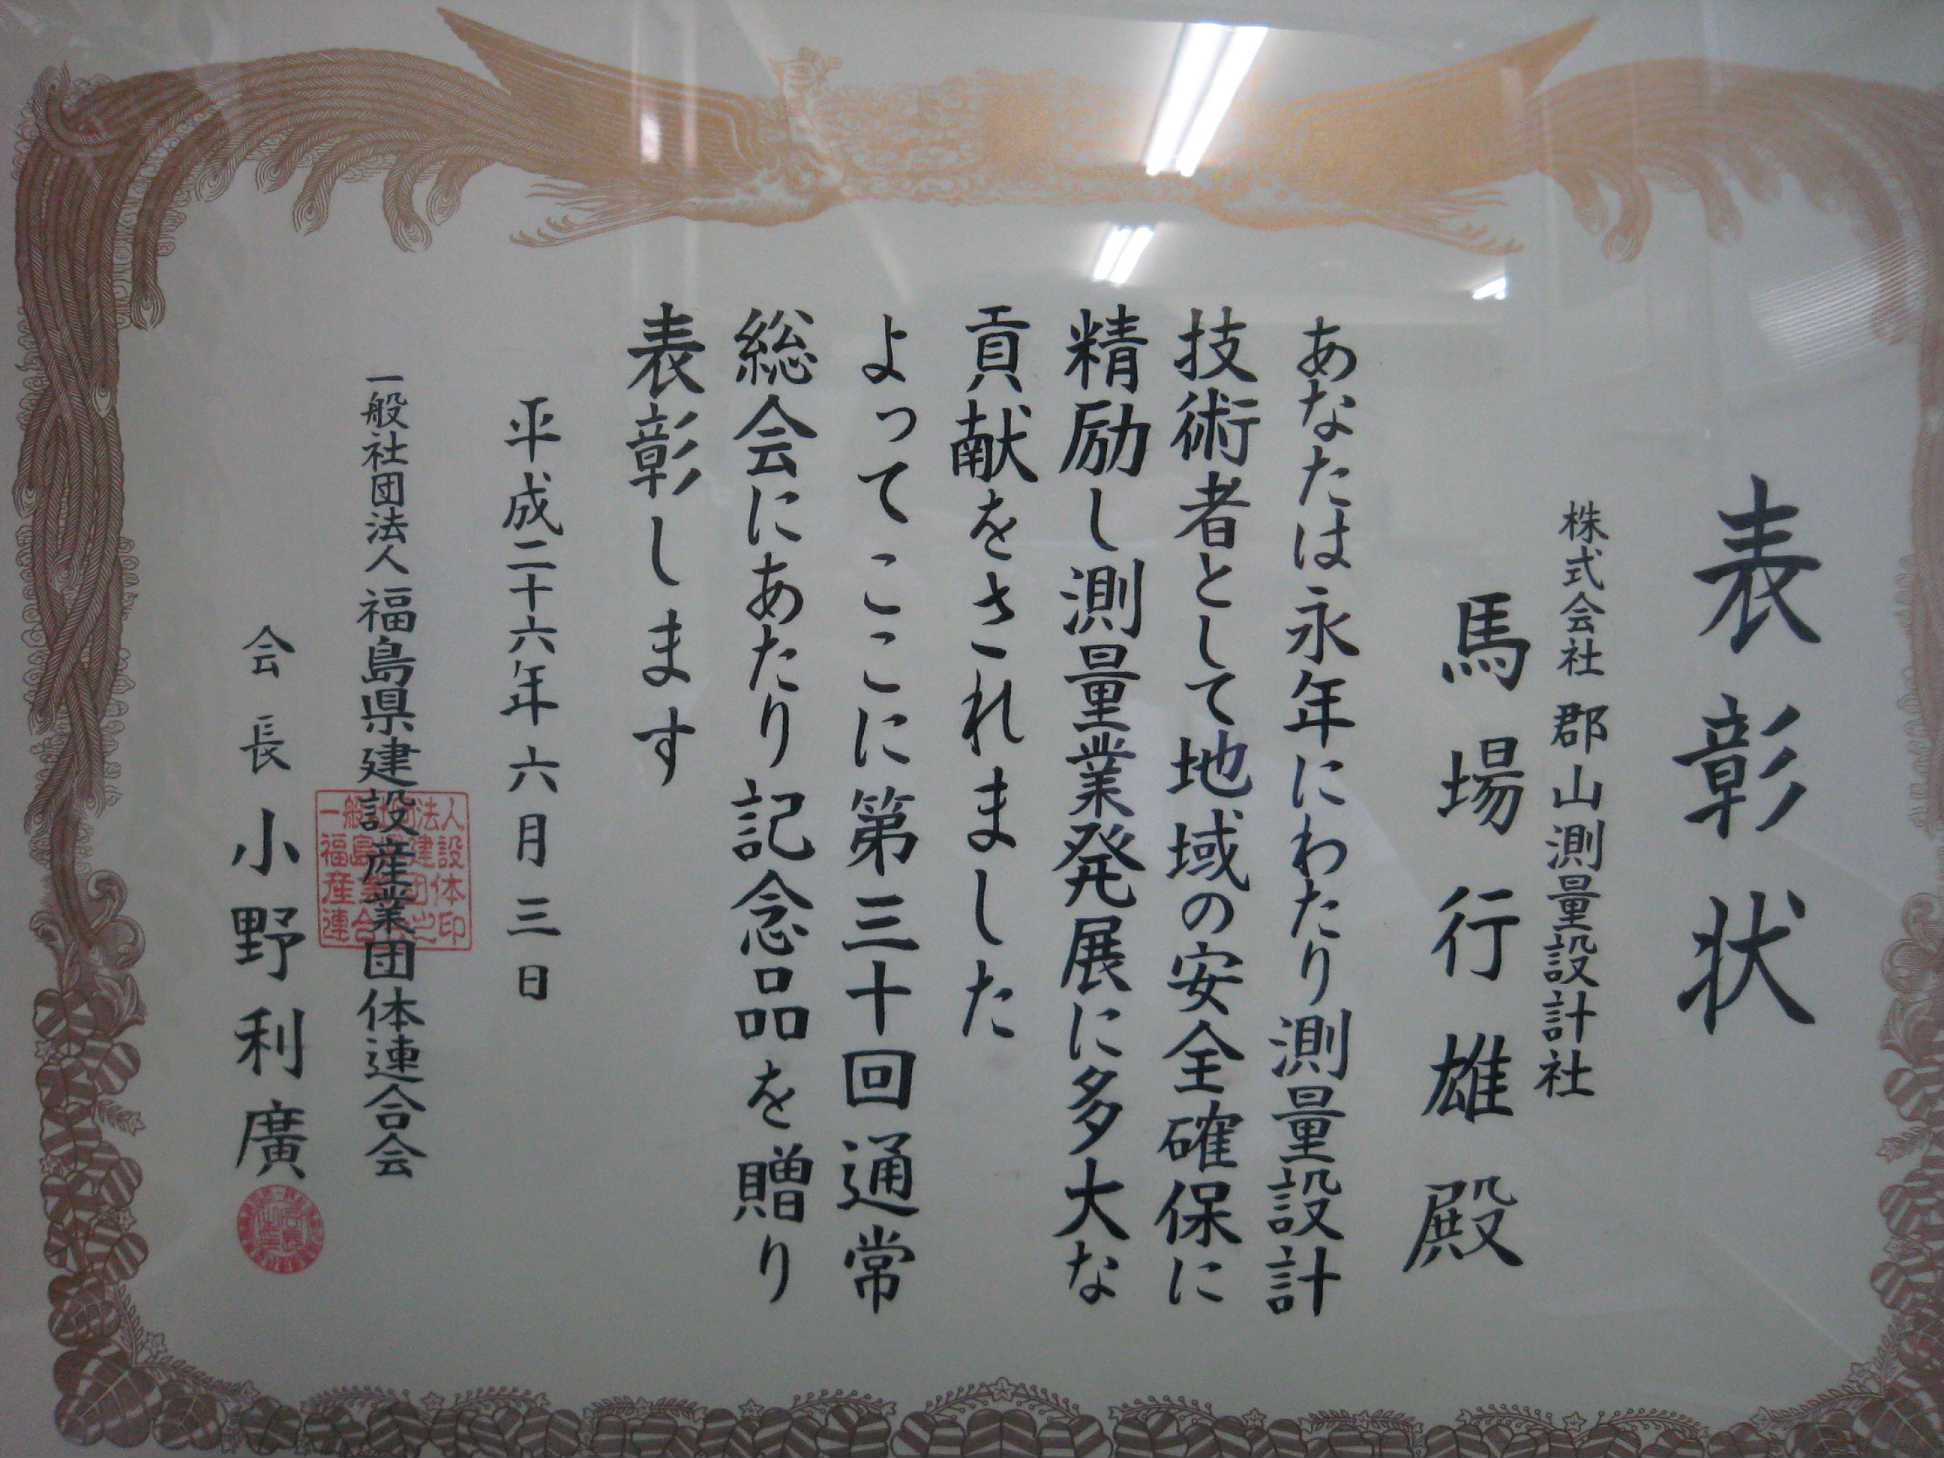 表彰状
株式会社 郡山測量設計社
馬場行雄殿
あなたは永年にわたり測量設計
技術者として地域の安全確保に
精励し測量業発展に多大な
貢献をされました
よってここに第三十回通常
総会にあたり記念品を贈り
表彰します
平成二十六年六月三日
一般社団法人 福島県建設産業団体連合会
会長 小野利廣